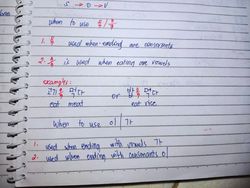 S → O → V
when to use 을/를
1. 을 used when ending are consonants
2. 를 is used when ending are vowels
example:
고기를 먹다 or 밥을 먹다
eat meat eat rice
When to use 이/가
1. used when ending with vowels 가
2. used when ending with consonants 이